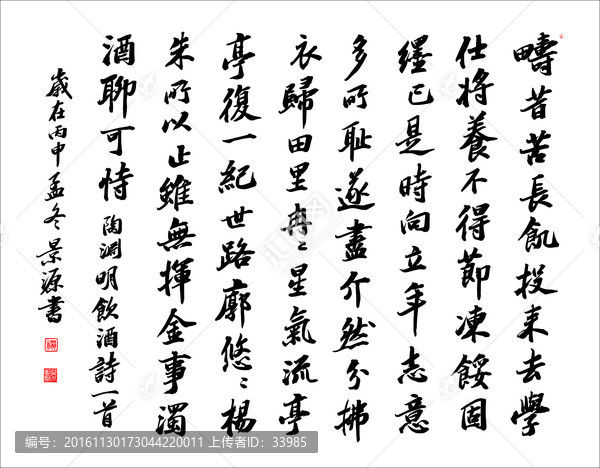 疇昔苦長飢投耒去學
仕將養不得節凍餒固
纏已是時向立年志意
多所耻遂盡介然分拂
衣歸田里冉〻星氣流亭
亭復一紀世路廓悠〻楊
朱所以止雖無揮金事濁
酒聊可恃 陶淵明飲酒詩一首
歲在丙申孟冬景源書
编号：20161130173044220011 上传者ID：33985